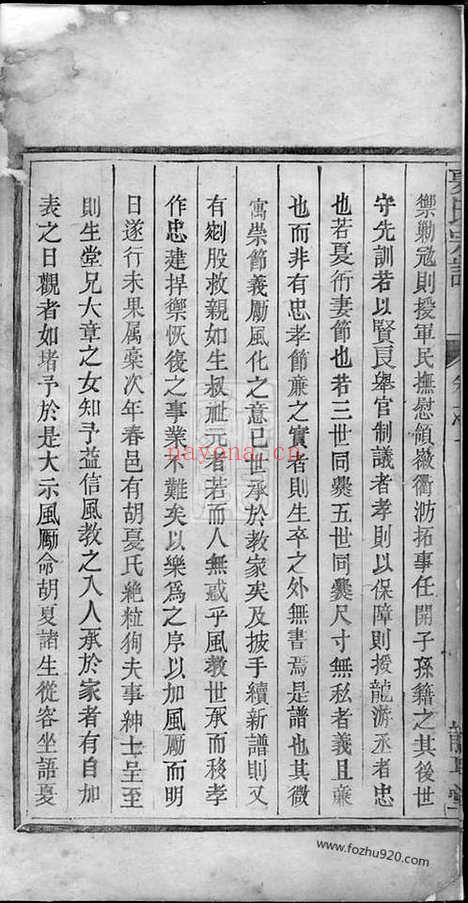 禦勦冦則授軍民撫慰領嶽衢泐拓事任開子孫籍之其後世
守先訓若以賢良舉官制議者孝則以保障則授龍游丞者忠
也若夏衍妻節也若三世同爨五世同爨尺寸無私者義且亷
也而非有忠孝節亷之實者則生卒之外無書焉是譜也其徴
寓崇節義勵風化之意已世承於教家矣及披手續新譜則又
有剜股救親如生叔祉元者若而人無忒乎風教世承而移孝
作忠建捍禦恢復之事業不難矣以樂爲之序以加風勵而明
日遂行未果属稾次年春邑有胡夏氏絶粒狥夫事紳士呈至
則生堂兄大章之女知予益信風教之入人承於家者有自加
表之日觀者如堵予於是大示風勵命胡夏諸生從容坐語夏
夏氏宗譜
nayona.cn
www.fozhu920.com